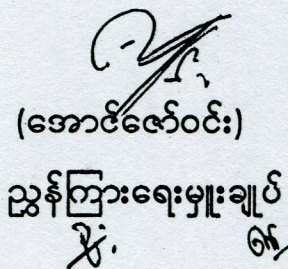 (အောင်ဇော်ဝင်း)
ညွှန်ကြားရေးမှူးချုပ်